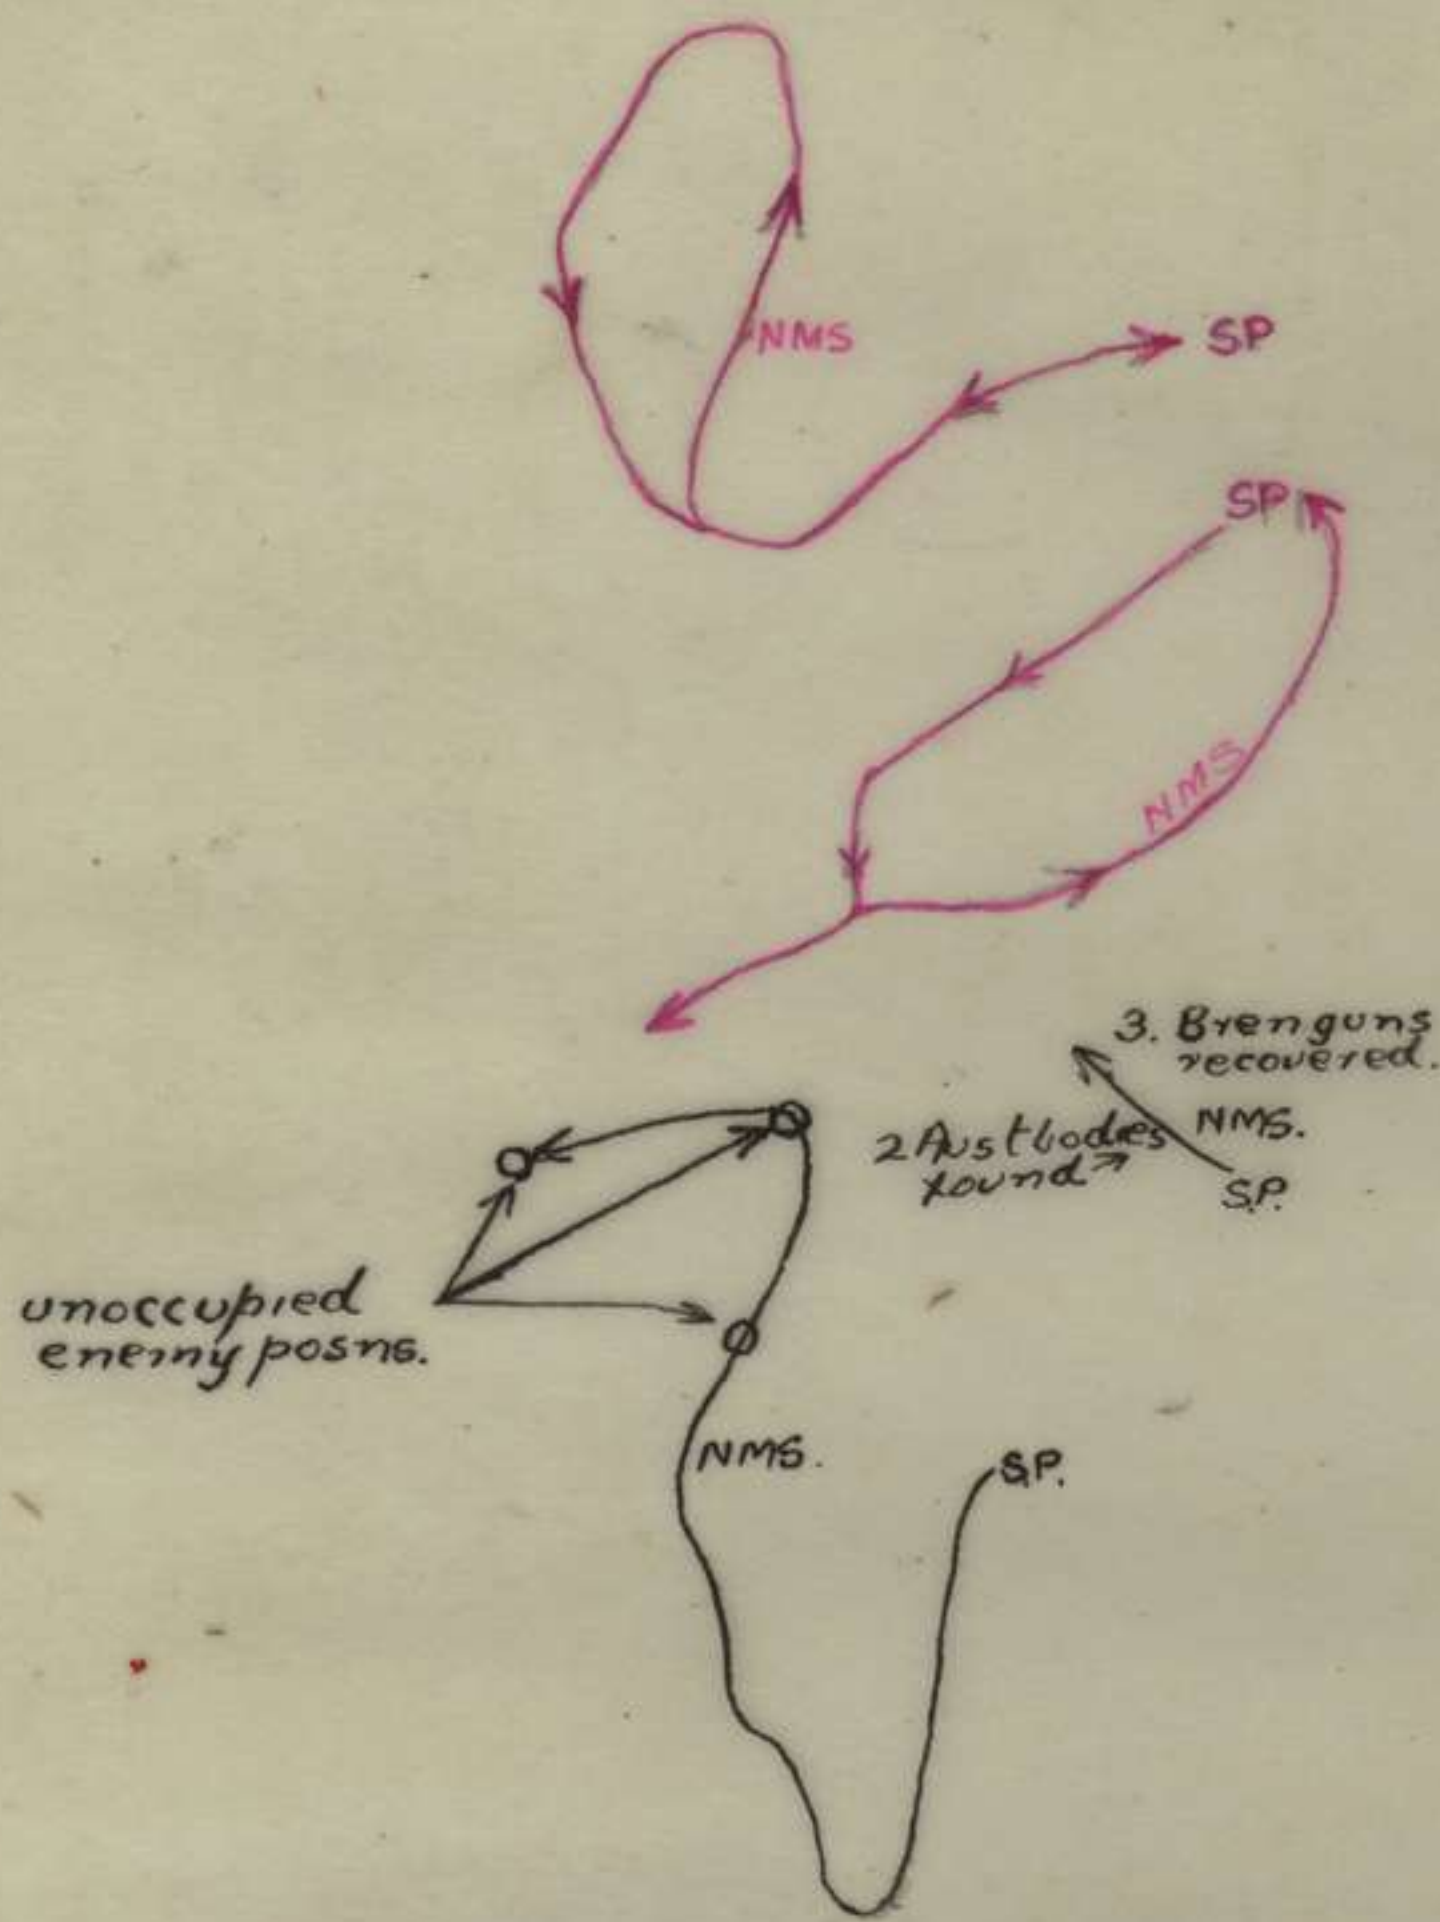 NMS
SP
SP
NMS
3. Bren guns
recovered.
2 Aust bodies
found
NMS.
S.P.
unoccupied
enemy posns.
NMS.
S.P.